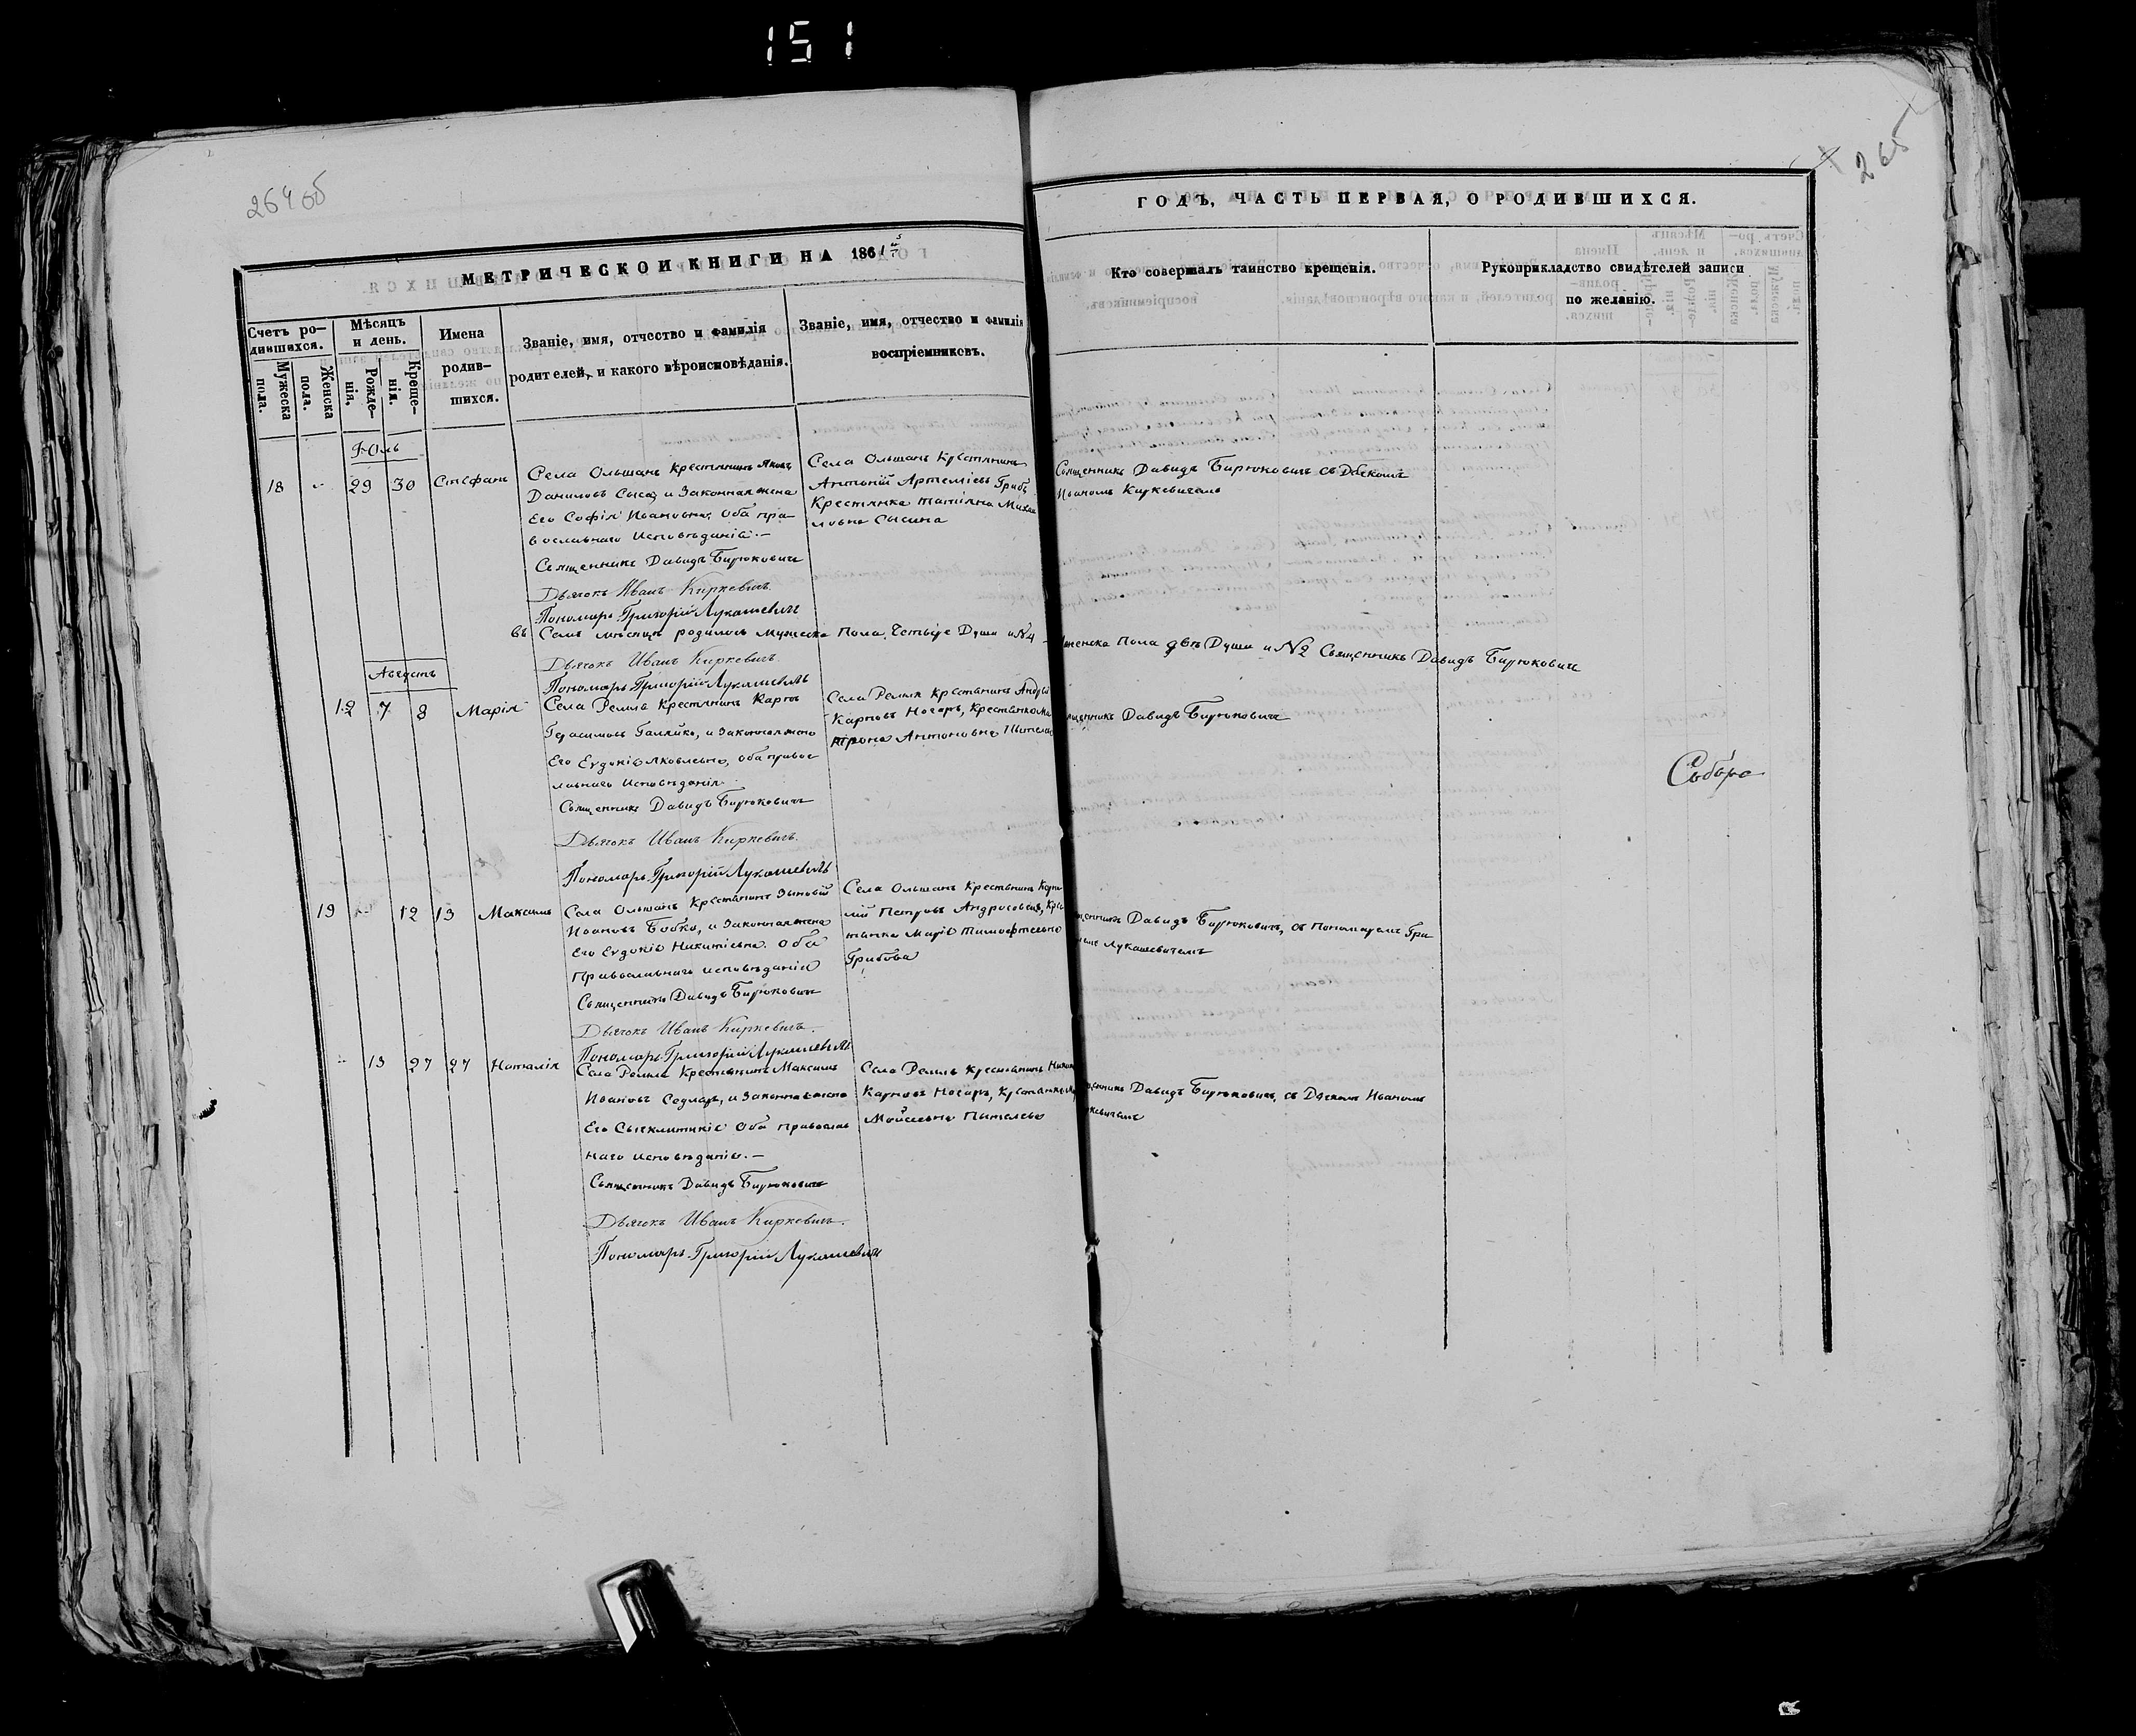 151
264 об
265
МЕТРИЧЕСКОЙ КНИГИ НА 1861
ГОДЪ, ЧАСТЬ ПЕРВАЯ, О РОДИВШИХСЯ.
Счетъ ро-
дившихся.
Мужеска
пола.
Женска
пола.
Мѣсяцъ
и день.
Рожде-
нія.
Креще-
нія.
Имена
родив-
шихся.
Званіе, имя, отчество и фамилія
родителей, и какого вѣроисповѣданія.
Званіе, имя, отчество и фамилія
воспріемниковъ.
Кто совершалъ таинство крещенія.
Рукоприкладство свидѣтелей записи
по желанію.
Юль
18 29 30 Стефанъ
Села Ольшанъ Крестянинъ Яковъ
Даниловъ Сыса и Законная жена
Его Софія Ивановна, Оба пра-
вославнаго Исповѣданія.—
Священникъ Давидъ Бирюковичъ
Дьячокъ Иванъ Киркевичъ.
Пономарь Григорій Лукашевичъ
Села Ольшанъ Крестянинъ
Антоній Артеміевъ Грибъ
Крестянка Татіяна Михаи
ловна Сысина
Священникъ Давидъ Бирюковичъ съ Дячкомъ
Иваномъ Киркевичемъ
Въ Семъ мѣсяцѣ родилось Мужеска Пола Четыре Души и №4 Женска Пола двѣ Души и №2 Священникъ Давидъ Бирюковичъ
Дьячокъ Иванъ Киркевичъ.
Пономарь Григорій Лукашевичъ
Августъ
12 7 8 Марія
Села Ремля Крестянинъ Карпъ
Герасимовъ и Законная жена
Его Евдокія Яковлевна, оба правос
лавнаго Исповѣданія
Священникъ Давидъ Бирюковичъ
Дьячокъ Иванъ Киркевичъ.
Пономарь Григорій Лукашевичъ
Села Ремля Крестянинъ Андрей
Карповъ Носоръ, Крестянка Ма
трона Антоновна
щенникъ Давидъ Бирюковичъ
19 12 13 Максимъ
Села Ольшанъ Крестянинъ Зыновій
Ивановъ Бобко, и Законная жена
Его Евдокія Никитіевна Оба
Православнаго исповѣданія
Священникъ Давидъ Бирюковичъ
Дьячокъ Иванъ Киркевичъ.
Пономарь Григорій Лукашевичъ
Села Ольшанъ Крестянинъ Корни
лій Петровъ Андросовецъ, Крес
тянка Марія Тимофтеевна
Грибова
щенникъ Давидъ Бирюковичъ, съ Пономаремъ Гри
Лукашевичемъ
13 27 27 Наталія
Села Ремля Крестянинъ Максимъ
Ивановъ Седляръ, и Законная жена
Его Сынклитикія Оба Православ
наго исповѣданія.—
Священникъ Давидъ Бирюковичъ
Дьячокъ Иванъ Киркевичъ.
Пономарь Григорій Лукашевичъ
Села Ремля Крестянинъ
Карповъ Носоръ, Крестянка
Мойсеевна
щенникъ Давидъ Бирюковичъ, съ Дячкомъ Иваномъ
кевичемъ